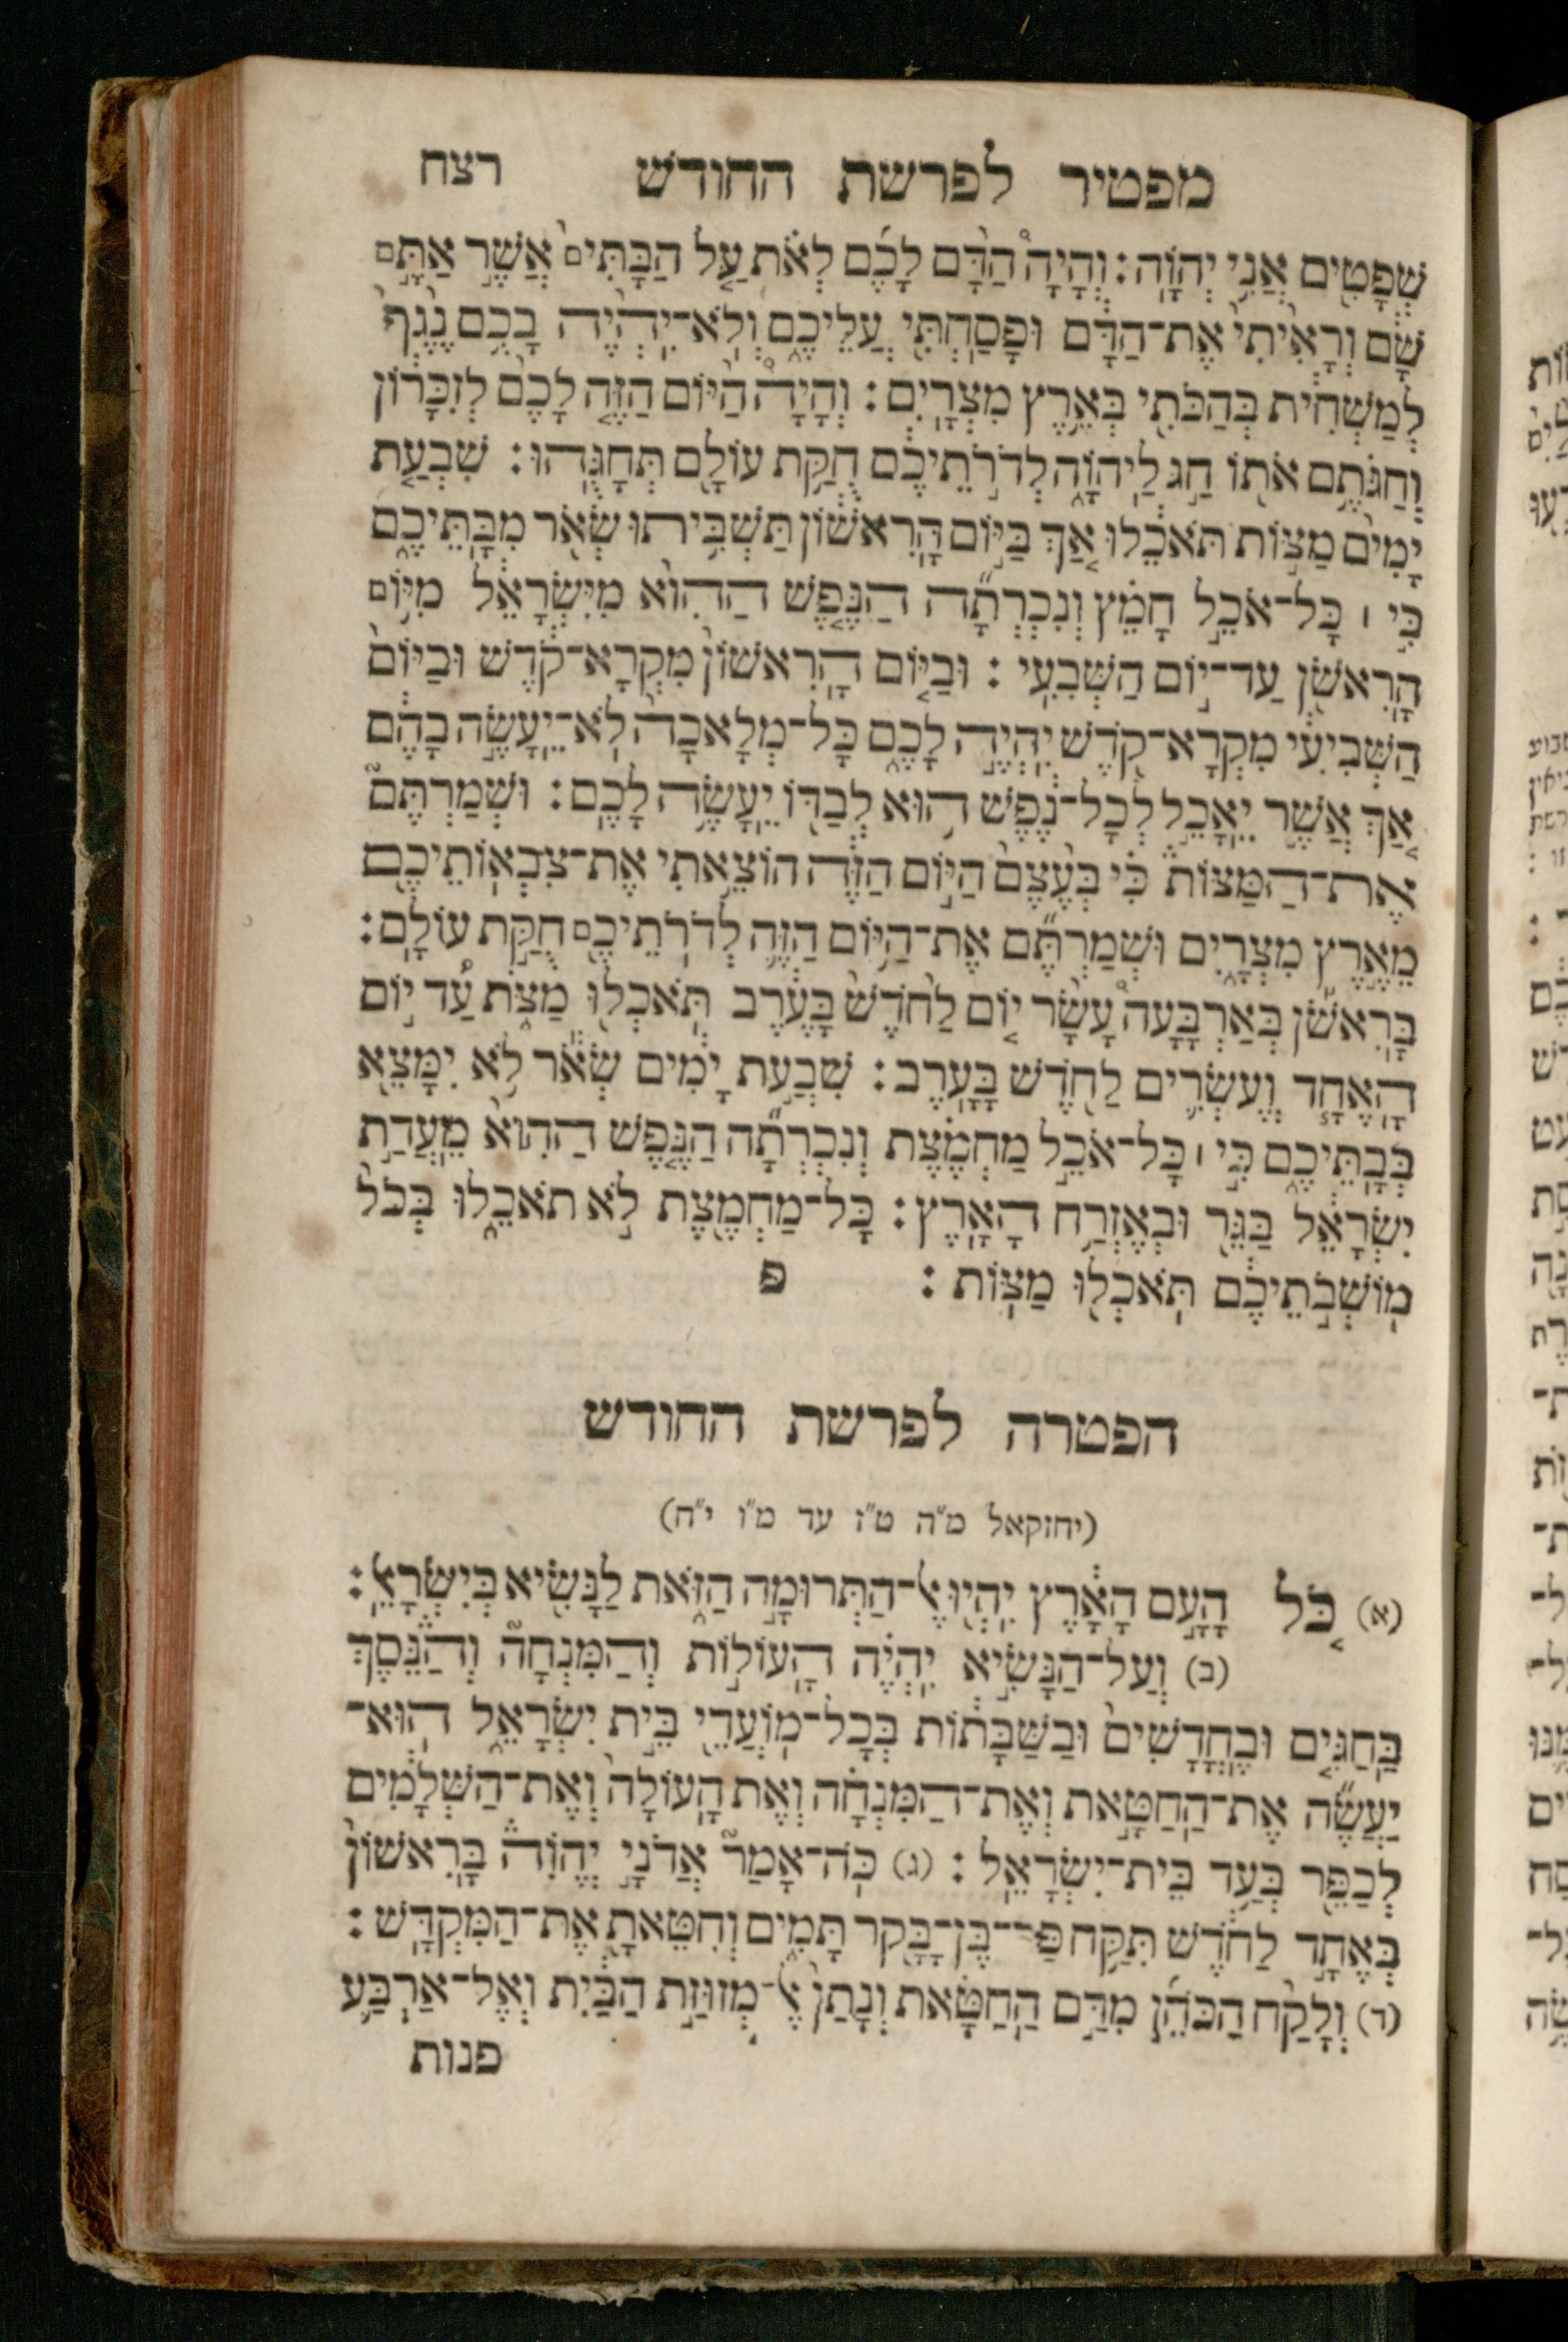 מפטיר לפרשת החודש רצח
שְׁפָטִ֖ים אֲנִ֥י יְהוָֹֽה׃ וְהָיָה֩ הַדָּ֨ם לָכֶ֜ם לְאֹ֗ת עַ֤ל הַבָּתִּים֙ אֲשֶׁ֣ר אַתֶּ֣ם
שָׁ֔ם וְרָאִ֙יתִי֙ אֶת־הַדָּ֔ם וּפָסַחְתִּ֖י עֲלֵיכֶ֑ם וְלֹא־יִֽהְיֶ֨ה בָכֶ֥ם נֶ֙גֶף֙
לְמַשְׁחִ֔ית בְּהַכֹּתִ֖י בְּאֶ֥רֶץ מִצְרָֽיִם׃ וְהָיָה֩ הַיּ֨וֹם הַזֶּ֤ה לָכֶם֙ לְזִכָּר֔וֹן
וְחַגֹּתֶ֥ם אֹת֖וֹ חַ֣ג לַֽיהוָֹ֑ה לְדֹרֹ֣תֵיכֶ֔ם חֻקַּ֥ת עוֹלָ֖ם תְּחָגֻּֽהוּ׃ שִׁבְעַ֤ת
יָמִים֙ מַצּ֣וֹת תֹּאכֵ֔לוּ אַ֚ךְ בַּיּ֣וֹם הָרִאשׁ֔וֹן תַּשְׁבִּ֥יתוּ שְׂאֹ֖ר מִבָּתֵּיכֶ֑ם
כִּ֣י ׀ כָּל־אֹכֵ֣ל חָמֵ֗ץ וְנִכְרְתָ֞ה הַנֶּ֤פֶשׁ הַהִוא֙ מִיִּשְׂרָאֵ֔ל מִיּ֥וֹם
הָרִאשֹׁ֖ן עַד־י֥וֹם הַשְּׁבִעִֽי׃ וּבַיּ֤וֹם הָרִאשׁוֹן֙ מִקְרָא־קֹ֔דֶשׁ וּבַיּוֹם֙
הַשְּׁבִיעִ֔י מִקְרָא־קֹ֖דֶשׁ יִהְיֶ֣ה לָכֶ֑ם כָּל־מְלָאכָה֙ לֹא־יֵֽעָשֶׂ֣ה בָהֶ֔ם
אַ֚ךְ אֲשֶׁ֣ר יֵאָכֵ֣ל לְכָל־נֶ֔פֶשׁ ה֥וּא לְבַדּ֖וֹ יֵֽעָשֶׂ֥ה לָכֶֽם׃ וּשְׁמַרְתֶּם֮
אֶת־הַמַּצּוֹת֒ כִּ֗י בְּעֶ֙צֶם֙ הַיּ֣וֹם הַזֶּ֔ה הוֹצֵ֥אתִי אֶת־צִבְאֽוֹתֵיכֶ֖ם
מֵאֶ֣רֶץ מִצְרָ֑יִם וּשְׁמַרְתֶּ֞ם אֶת־הַיּ֥וֹם הַזֶּ֛ה לְדֹרֹֽתֵיכֶ֖ם חֻקַּ֥ת עוֹלָֽם׃
בָּֽרִאשֹׁ֡ן בְּאַרְבָּעָה֩ עָשָׂ֨ר י֤וֹם לַחֹ֙דֶשׁ֙ בָּעֶ֔רֶב תֹּֽאכְל֖וּ מַצֹּ֑ת עַ֠ד י֣וֹם
הָאֶחָ֧ד וְעֶשְׂרִ֛ים לַחֹ֖דֶשׁ בָּעָֽרֶב׃ שִׁבְעַ֣ת יָמִ֔ים שְׂאֹ֕ר לֹ֥א יִמָּצֵ֖א
בְּבָֽתֵּיכֶ֑ם כִּ֣י ׀ כָּל־אֹכֵ֣ל מַחְמֶ֗צֶת וְנִכְרְתָ֞ה הַנֶּ֤פֶשׁ הַהִוא֙ מֵֽעֲדַ֣ת
יִשְׂרָאֵ֔ל בַּגֵּ֖ר וּבְאֶזְרַ֥ח הָאָֽרֶץ׃ כָּל־מַחְמֶ֖צֶת לֹ֣א תֹאכֵ֑לוּ בְּכֹל֙
מֽוֹשְׁבֹ֣תֵיכֶ֔ם תֹּאכְל֖וּ מַצּֽוֹת׃ פ
הפטרה לפרשת החודש
(יחזקאל מ״ה ט״ז עד מ״ו י״ח)
(א) כֹּ֚ל הָעָ֣ם הָאָ֔רֶץ יִֽהְי֖וּ אֶל־הַתְּרוּמָ֣ה הַזֹּ֑את לַנָּשִׂ֖יא בְּיִשְׂרָאֵֽל׃
(ב) וְעַל־הַנָּשִׂ֣יא יִֽהְיֶ֗ה הָעוֹל֣וֹת וְהַמִּנְחָה֮ וְהַנֵּסֶךְ֒
בַּֽחַגִּ֤ים וּבֶֽחֳדָשִׁים֙ וּבַשַּׁבָּת֔וֹת בְּכָֽל־מֽוֹעֲדֵ֖י בֵּ֣ית יִשְׂרָאֵ֑ל הֽוּא־
יַעֲשֶׂ֞ה אֶת־הַֽחַטָּ֣את וְאֶת־הַמִּנְחָ֗ה וְאֶת הָֽעוֹלָה֙ וְאֶת־הַשְּׁלָמִ֔ים
לְכַפֵּ֖ר בְּעַ֥ד בֵּית־יִשְׂרָאֵֽל׃ (ג) כֹּֽה־אָמַר֮ אֲדֹנָ֣י יֱהוִֹה֒ בָּֽרִאשׁוֹן֙
בְּאֶחָ֣ד לַחֹ֔דֶשׁ תִּקַּ֥ח פַּר־בֶּן־בָּקָ֖ר תָּמִ֑ים וְחִטֵּאתָ֖ אֶת־הַמִּקְדָּֽשׁ׃
(ד) וְלָקַ֨ח הַכֹּהֵ֜ן מִדַּ֣ם הַֽחַטָּ֗את וְנָתַן֙ אֶל־מְזוּזַ֣ת הַבַּ֔יִת וְאֶל־אַרְבַּ֛ע
פנות